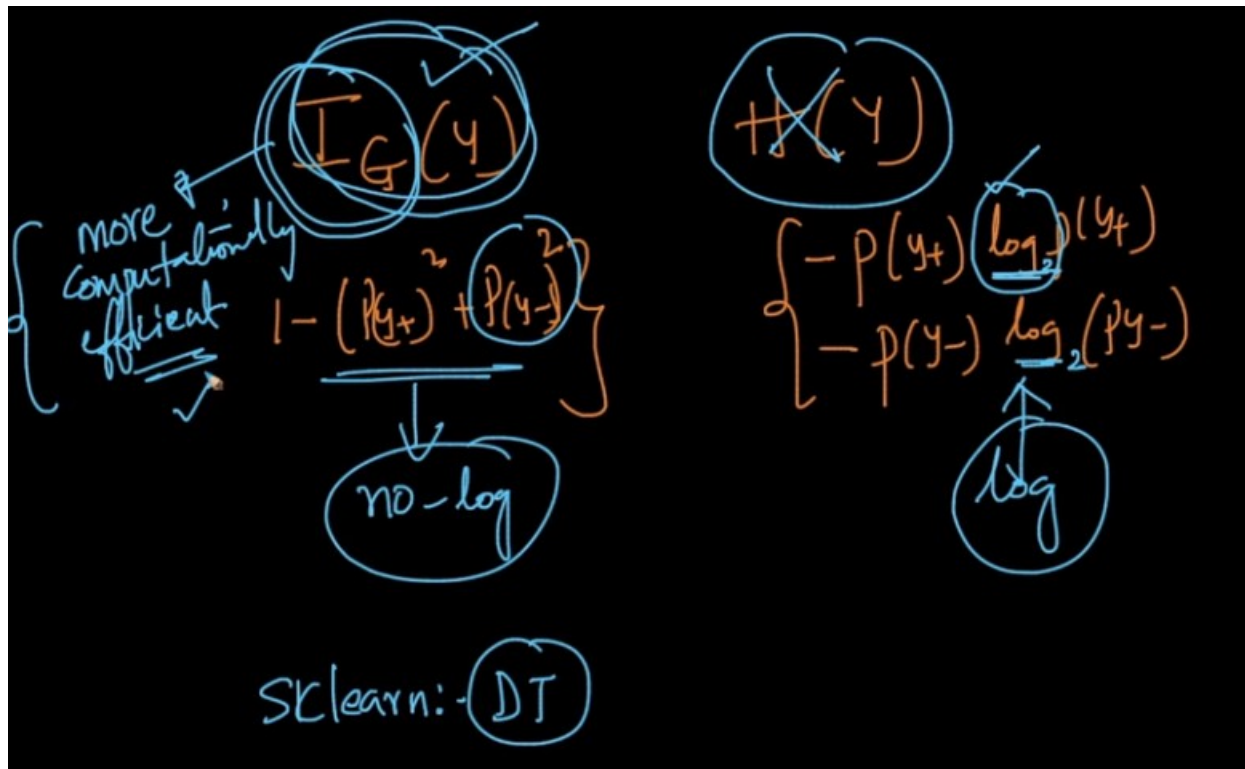 I_G(Y)
more
computationally
efficient
1 - (P(y+)² + P(y-)²)
no-log
H(Y)
- P(y+) log₂ P(y+)
- P(y-) log₂ (Py-)
log
SKlearn:- DT